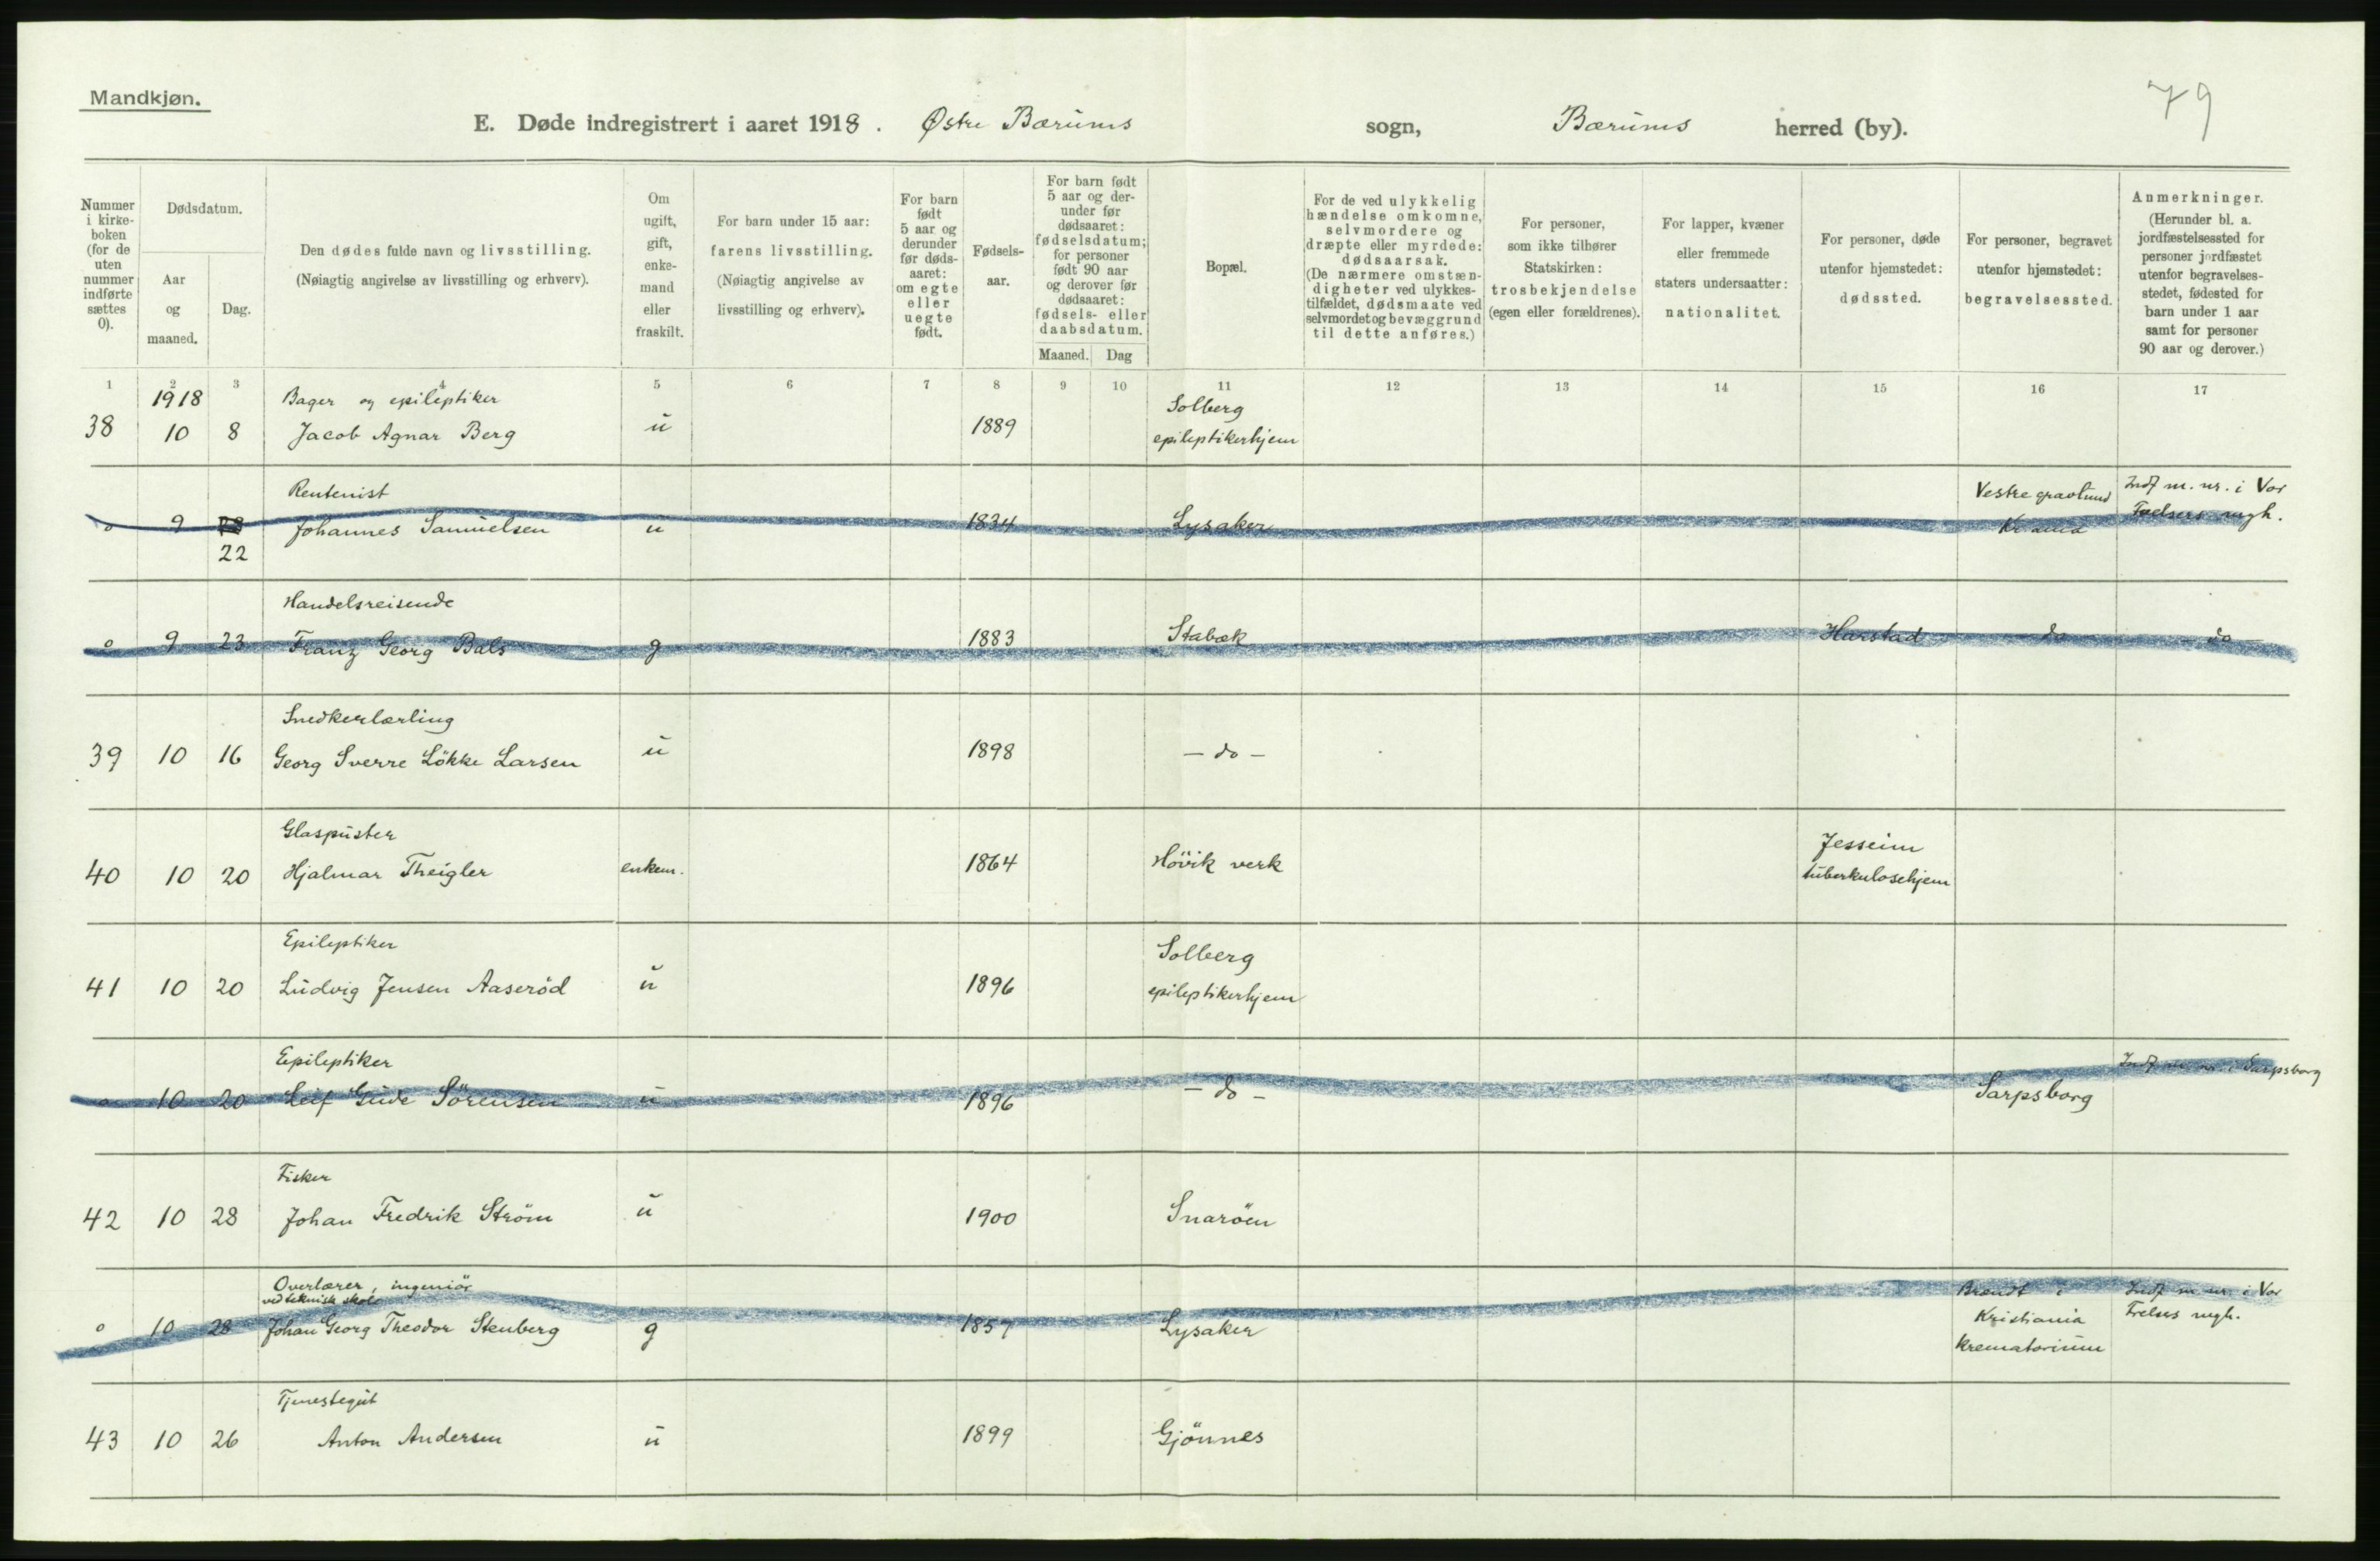 Mandkjøn.
79
E. Døde indregistrert i aaret 1918. Østre Bærums sogn, Bærums herred (by).
Nummer i kirke-boken (for de uten nummer indførte sættes 0).
Dødsdatum.
Aar og maaned.
Dag.
Den dødes fulde navn og livsstilling.
(Nøiagtig angivelse av livsstilling og erhverv).
Om ugift, gift, enke-mand eller fraskilt.
For barn under 15 aar: farens livsstilling.
(Nøiagtig angivelse av livsstilling og erhverv).
For barn født 5 aar og derunder før døds-aaret: om egte eller uegte født.
Fødsels-aar.
For barn født 5 aar og der-under før dødsaaret: fødselsdatum; for personer født 90 aar og derover før dødsaaret: fødsels- eller daabsdatum.
Maaned. Dag
Bopæl.
For de ved ulykkelig hændelse omkomne, selvmordere og dræpte eller myrdede: dødsaarsak.
(De nærmere omstæn-digheter ved ulykkes-tilfældet, dødsmaate ved selvmordet og bevæggrund til dette anføres.)
For personer, som ikke tilhører Statskirken: trosbekjendelse (egen eller forældrenes).
For lapper, kvæner eller fremmede staters undersaatter: nationalitet.
For personer, døde utenfor hjemstedet: dødssted.
For personer, begravet utenfor hjemstedet: begravelsessted.
Anmerkninger.
(Herunder bl. a. jordfæstelsessted for personer jordfæstet utenfor begravelses-stedet, fødested for barn under 1 aar samt for personer 90 aar og derover.)
1 2 3 4 5 6 7 8 9 10 11 12 13 14 15 16 17
1918 Bager og epileptiker Solberg
38 10 8 Jacob Agnar Berg u 1889 epileptikerhjem
Rentenist Vestre gravlund Indf m. nr. i Vor
0 9 Johannes Samuelsen u 1834 Lysaker Kr.ania Frelsers mgh.
22
Handelsreisende
0 9 23 Franz Georg Bals g 1883 Stabæk Harstad do do
Snedkerlærling
39 10 16 Georg Sverre Lökke Larsen u 1898 - do -
Glaspuster Jesseim
40 10 20 Hjalmar Theigler enkem. 1864 Hövik verk tuberkulosehjem
Epileptiker Solberg
41 10 20 Ludvig Jensen Aaseröd u 1896 epileptikerhjem
Epileptiker Indf m. nr. i Sarpsborg
0 10 20 Leif Gude Sörensen u 1896 - do - Sarpsborg
Fisker
42 10 28 Johan Fredrik Ström u 1900 Snaröen
Overlærer, ingeniör Brændt i Indf m nr. i Vor
ved teknisk skole
0 10 28 Johan Georg Theodor Stenberg g 1857 Lysaker Kristiania Frelsers mgh.
krematorium
Tjenestegut
43 10 26 Anton Andersen u 1899 Gjönnes